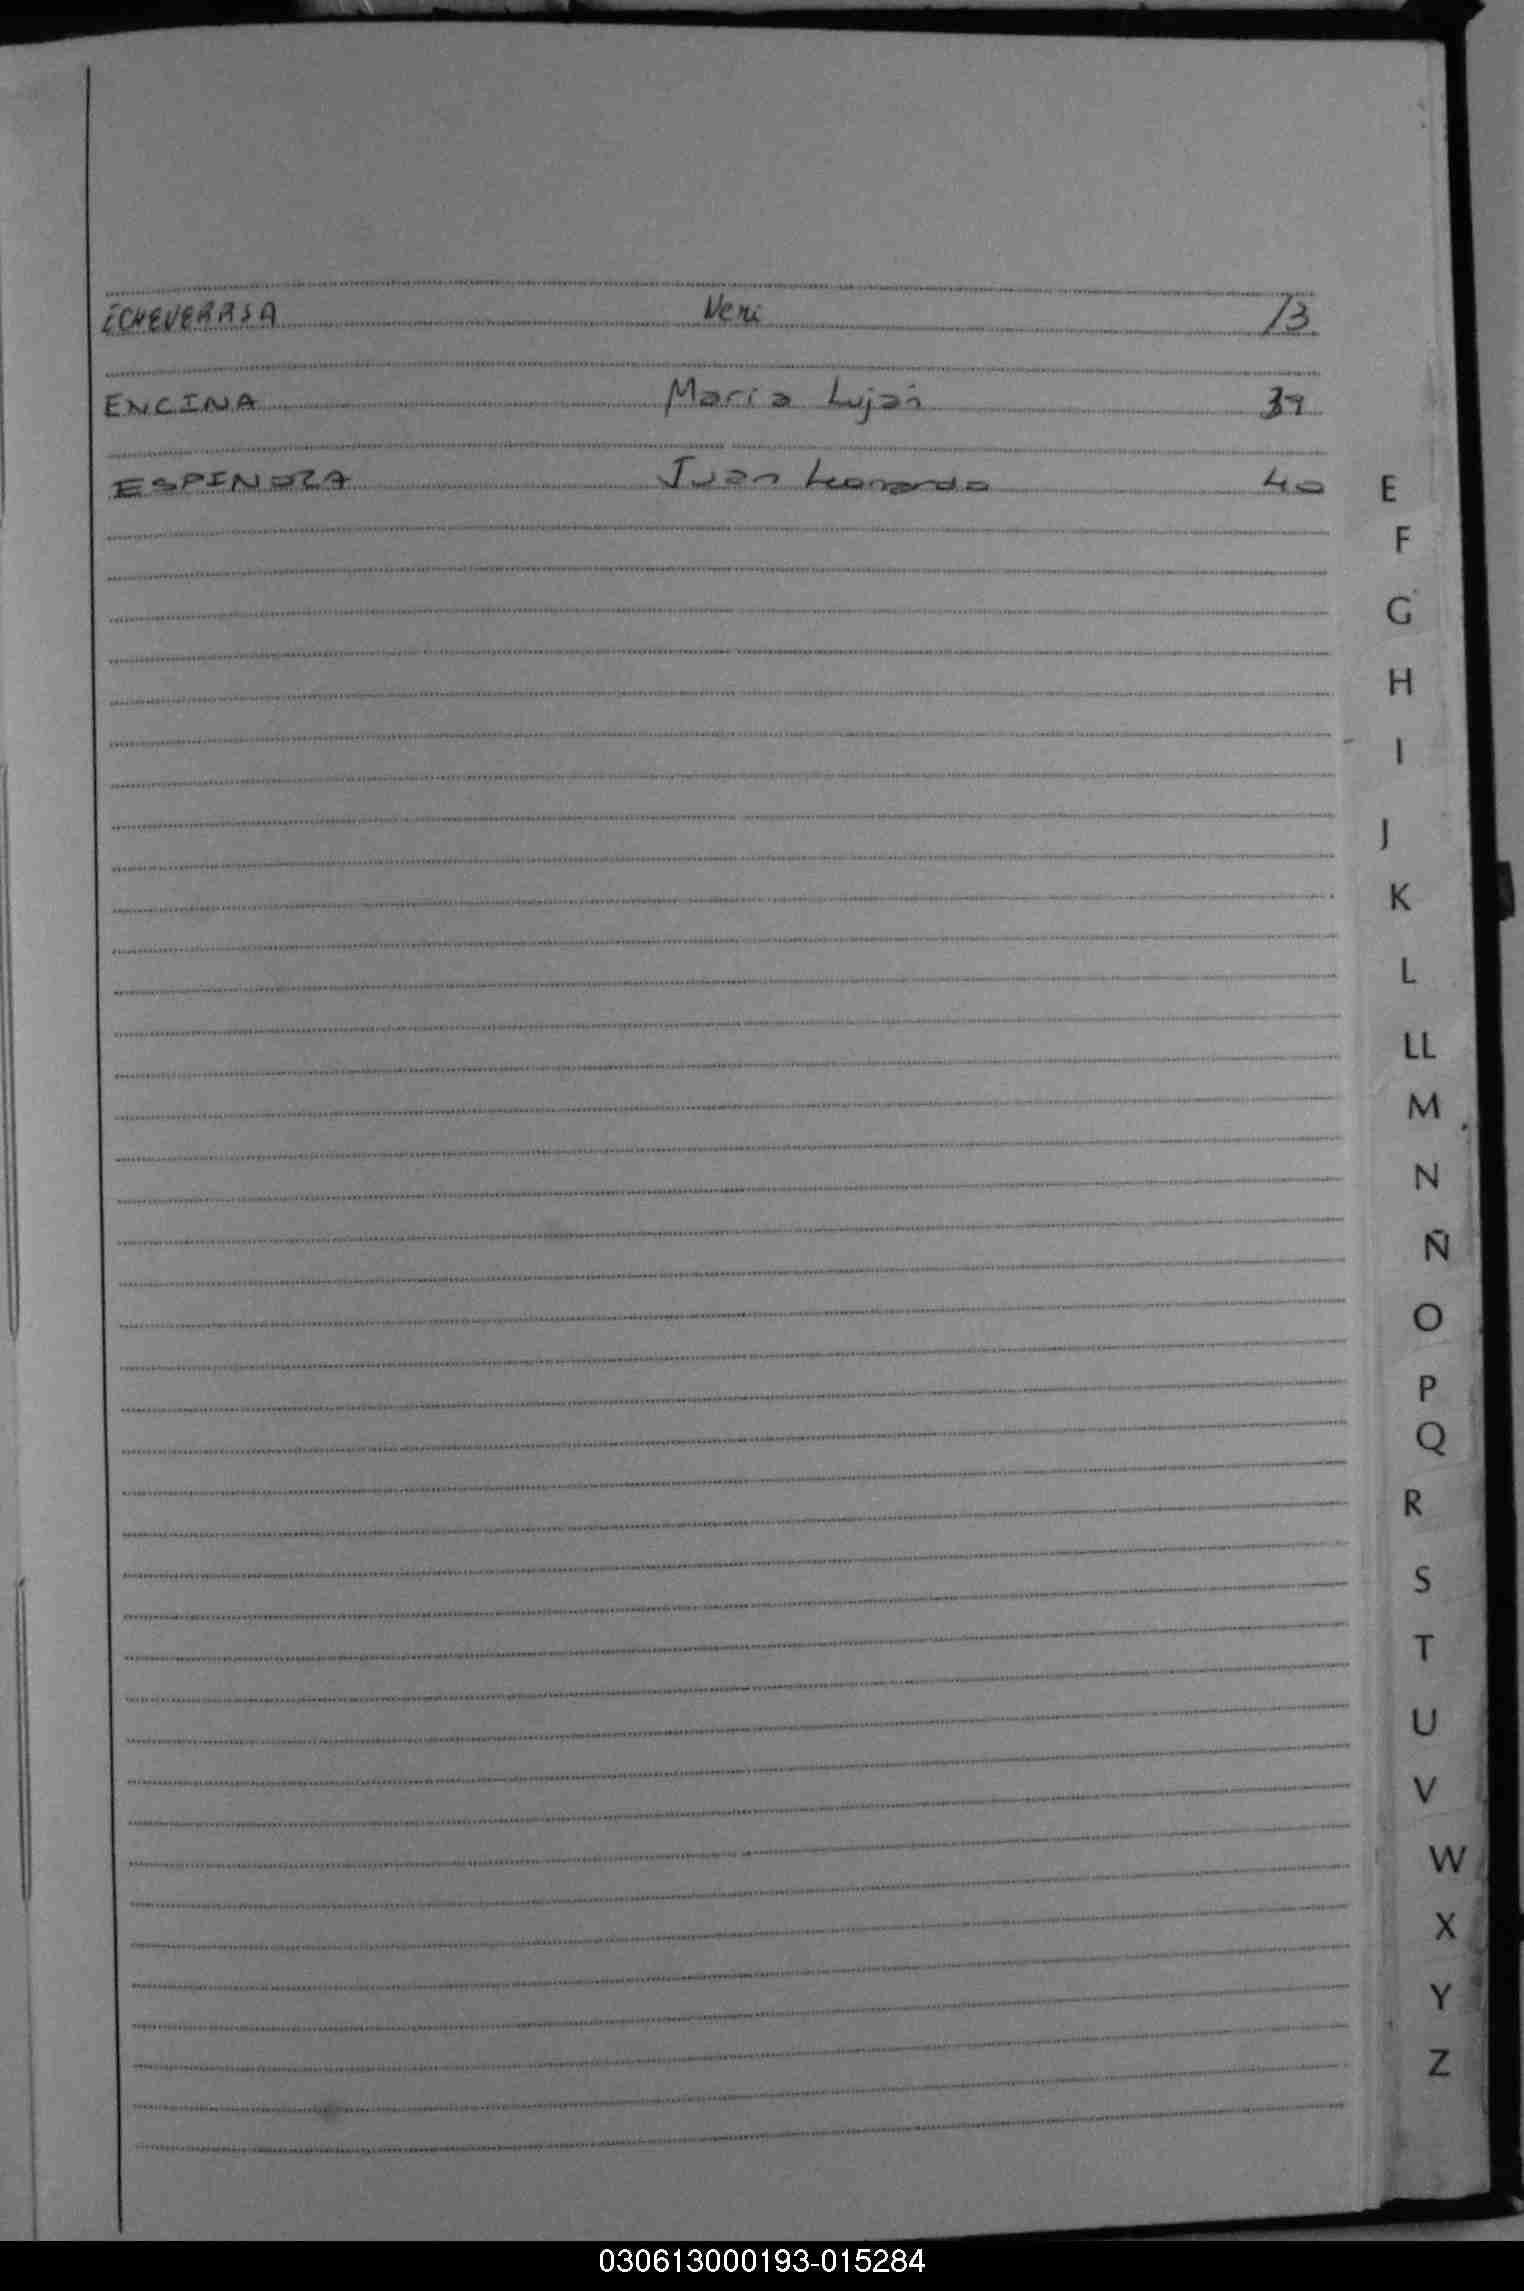 ECHEVERRIA Neri 13
ENCINA Maria Lujan 39
ESPINOZA Juan Leonardo 40
E
F
G
H
I
J
K
L
LL
M
N
Ñ
O
P
Q
R
S
T
U
V
W
X
Y
Z
030613000193-015284